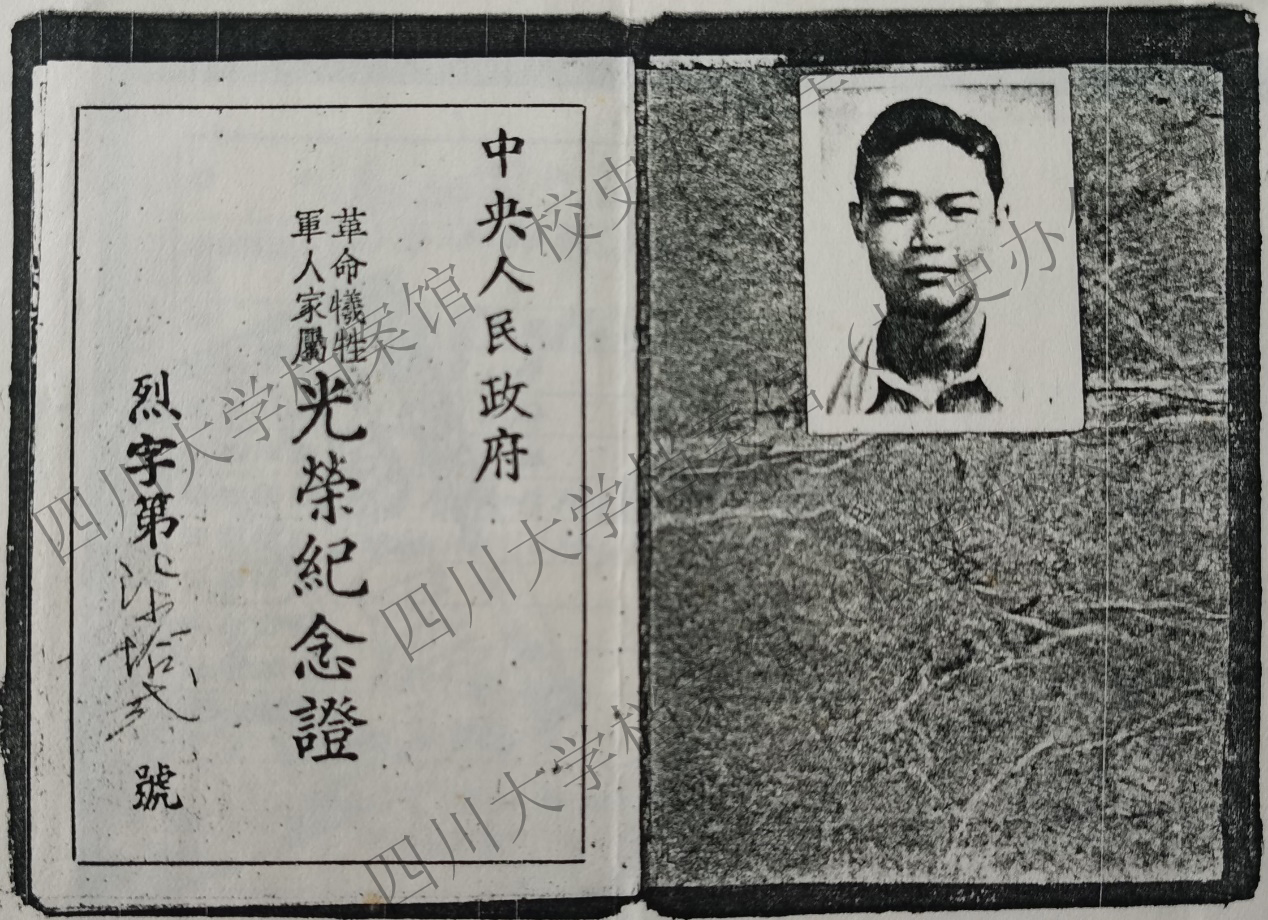 中央人民政府
革命犧牲
軍人家屬
光榮紀念證
烈字第
拾弍
號
四川大学档案馆（校史办
四川大学档案馆（校史办
四川大学档